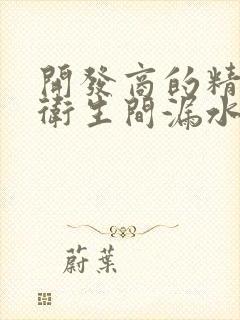 開發商的精
衛生間漏水
蔚葉